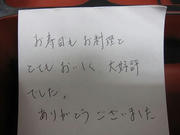 お寿司もお料理も
とてもおいしく、大好評
でした。
ありがとうございました